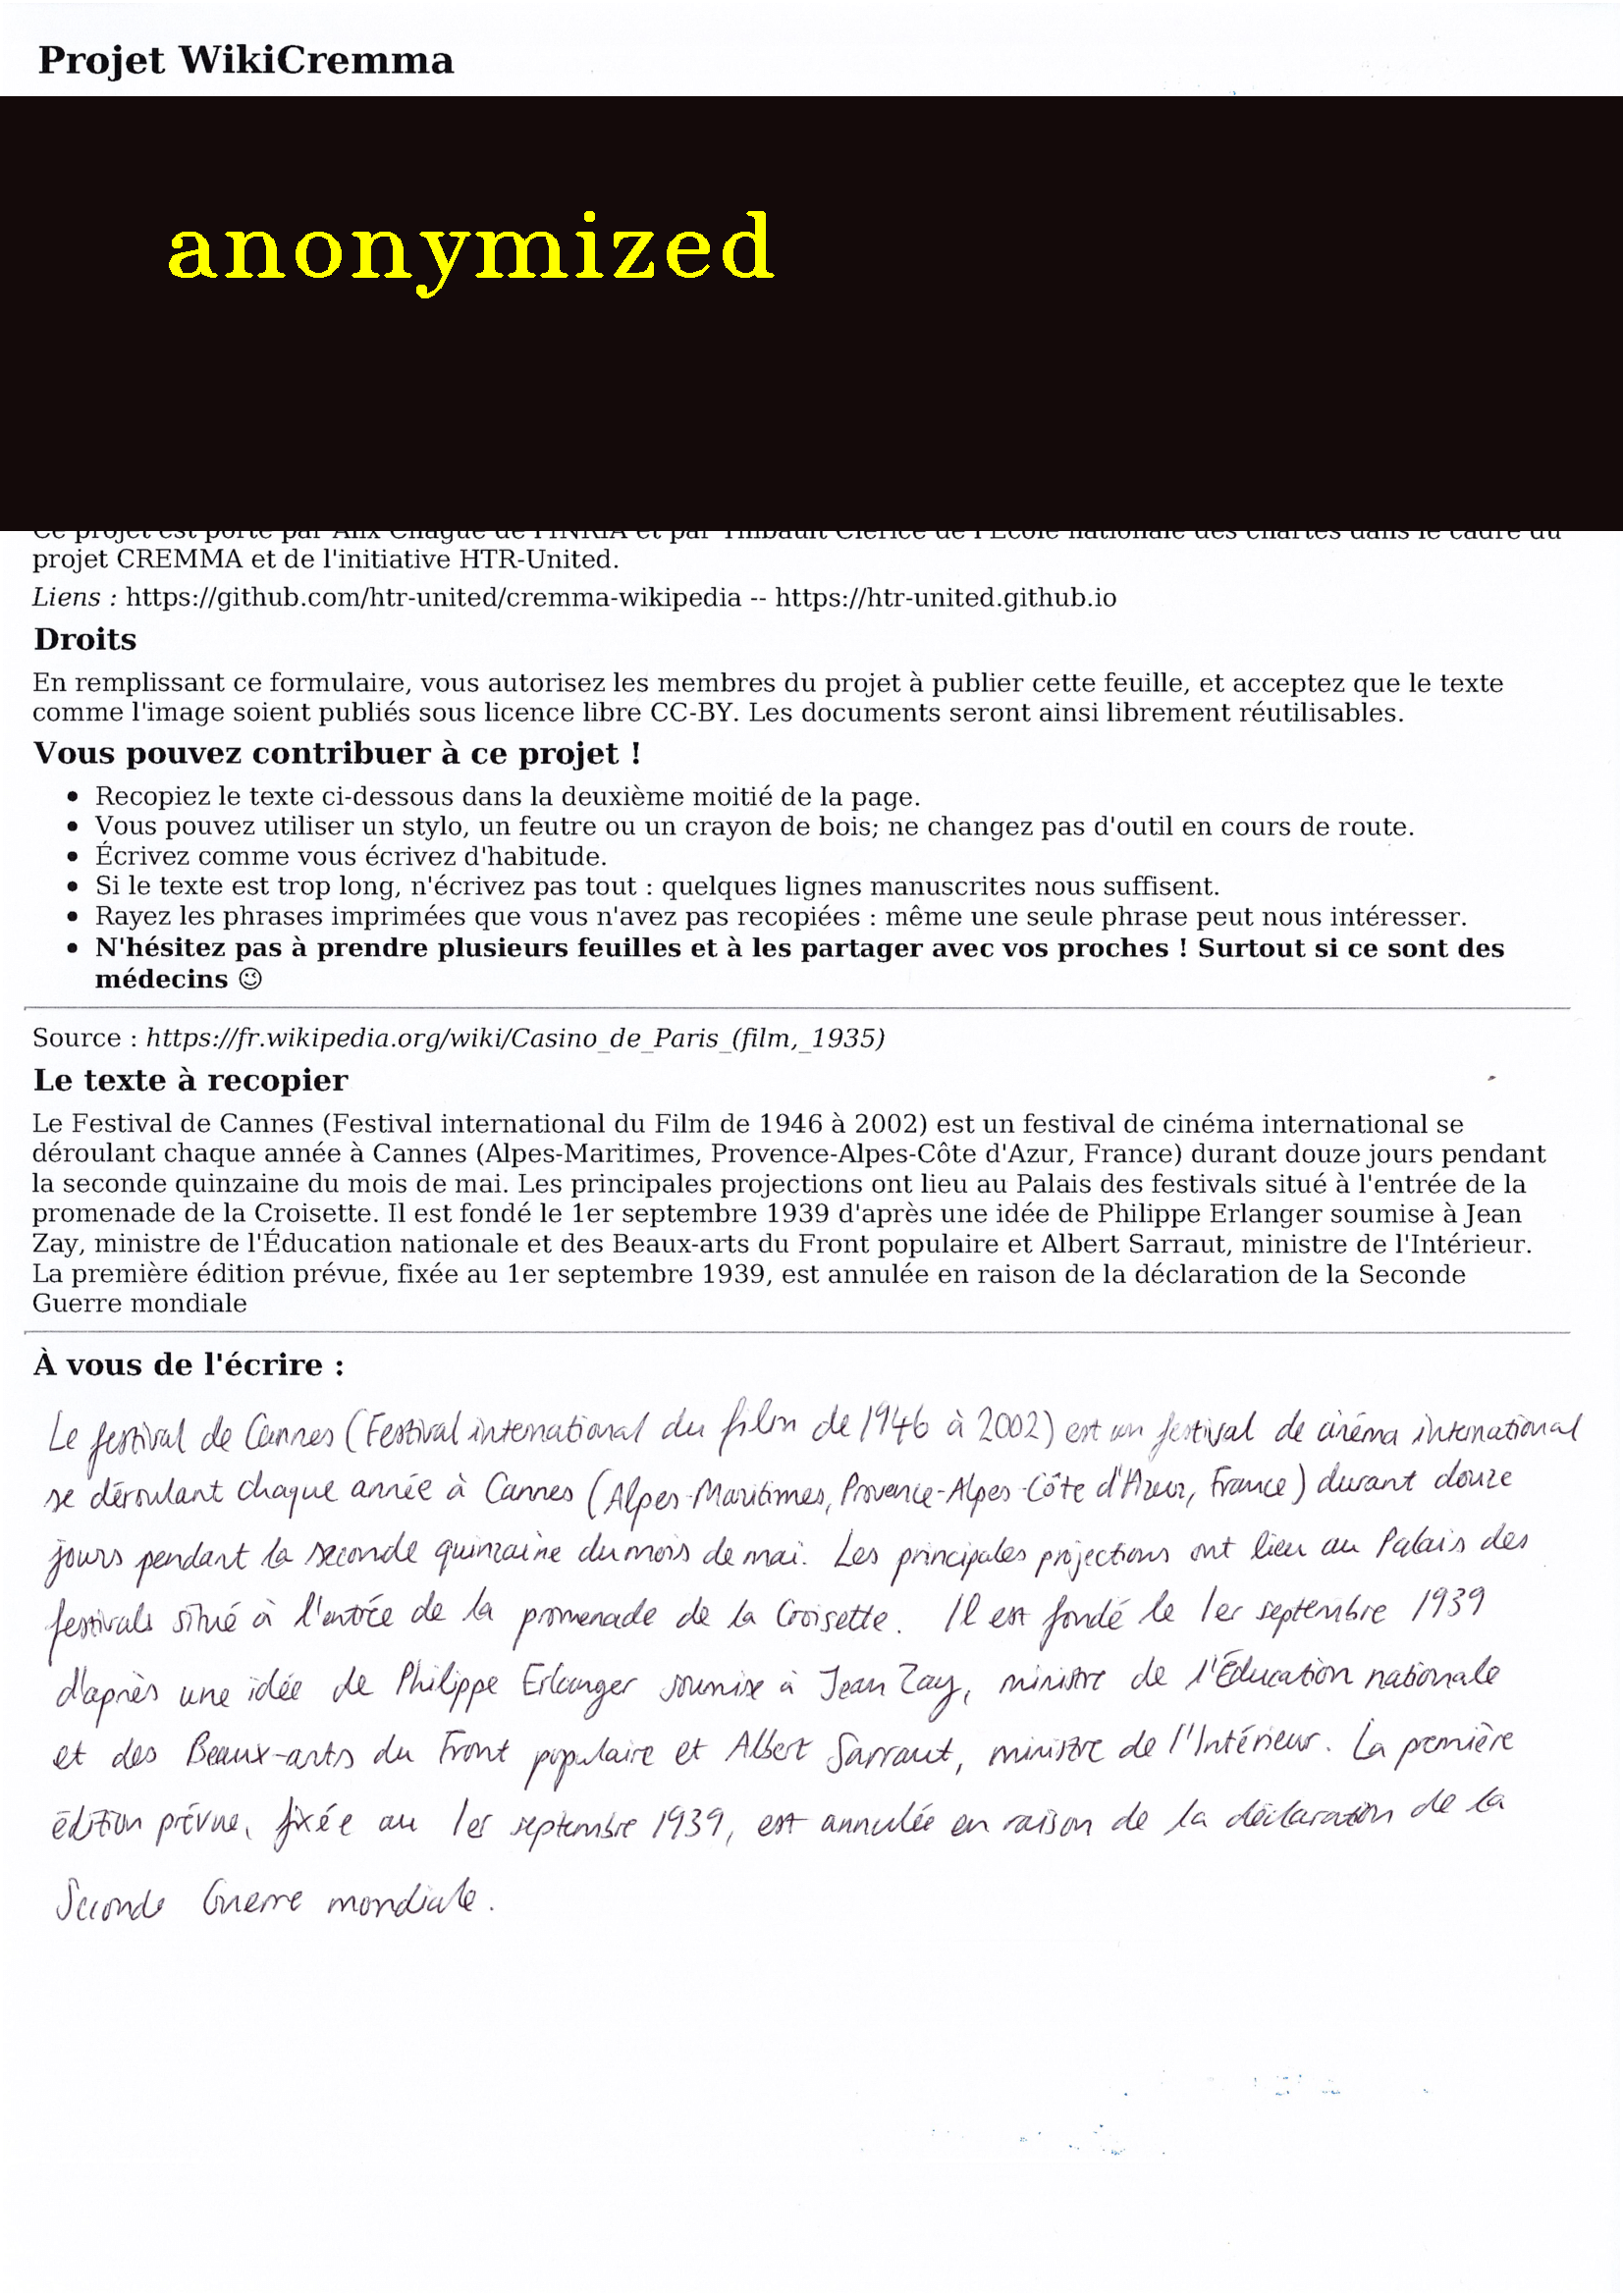 Projet WikiCremma
anonymized
Ce projet est porté par Alix Chagué de l'INRIA et par Thibault Clérice de l'École nationale des chartes dans le cadre du
projet CREMMA et de l'initiative HTR-United.
Liens : https://github.com/htr-united/cremma-wikipedia -- https://htr-united.github.io
Droits
En remplissant ce formulaire, vous autorisez les membres du projet à publier cette feuille, et acceptez que le texte
comme l'image soient publiés sous licence libre CC-BY. Les documents seront ainsi librement réutilisables.
Vous pouvez contribuer à ce projet !
• Recopiez le texte ci-dessous dans la deuxième moitié de la page.
• Vous pouvez utiliser un stylo, un feutre ou un crayon de bois; ne changez pas d'outil en cours de route.
• Écrivez comme vous écrivez d'habitude.
• Si le texte est trop long, n'écrivez pas tout : quelques lignes manuscrites nous suffisent.
• Rayez les phrases imprimées que vous n'avez pas recopiées : même une seule phrase peut nous intéresser.
• N'hésitez pas à prendre plusieurs feuilles et à les partager avec vos proches ! Surtout si ce sont des
médecins ☺
Source : https://fr.wikipedia.org/wiki/Casino_de_Paris_(film,_1935)
Le texte à recopier
Le Festival de Cannes (Festival international du Film de 1946 à 2002) est un festival de cinéma international se
déroulant chaque année à Cannes (Alpes-Maritimes, Provence-Alpes-Côte d'Azur, France) durant douze jours pendant
la seconde quinzaine du mois de mai. Les principales projections ont lieu au Palais des festivals situé à l'entrée de la
promenade de la Croisette. Il est fondé le 1er septembre 1939 d'après une idée de Philippe Erlanger soumise à Jean
Zay, ministre de l'Éducation nationale et des Beaux-arts du Front populaire et Albert Sarraut, ministre de l'Intérieur.
La première édition prévue, fixée au 1er septembre 1939, est annulée en raison de la déclaration de la Seconde
Guerre mondiale
À vous de l'écrire :
Le festival de Cannes (Festival international du film de 1946 à 2002) est un festival de cinéma international
se déroulant chaque année à Cannes (Alpes-Maritimes, Provence-Alpes-Côte d'Azur, France) durant douze
jours pendant la seconde quinzaine du mois de mai. Les principales projections ont lieu au Palais des
festivals situé à l'entrée de la promenade de la Croisette. Il est fondé le 1er septembre 1939
d'après une idée de Philippe Erlanger soumise à Jean Zay, ministre de l'Éducation nationale
et des Beaux-arts du Front populaire et Albert Sarraut, ministre de l'Intérieur. La première
édition prévue, fixée au 1er septembre 1939, est annulée en raison de la déclaration de la
Seconde Guerre mondiale.